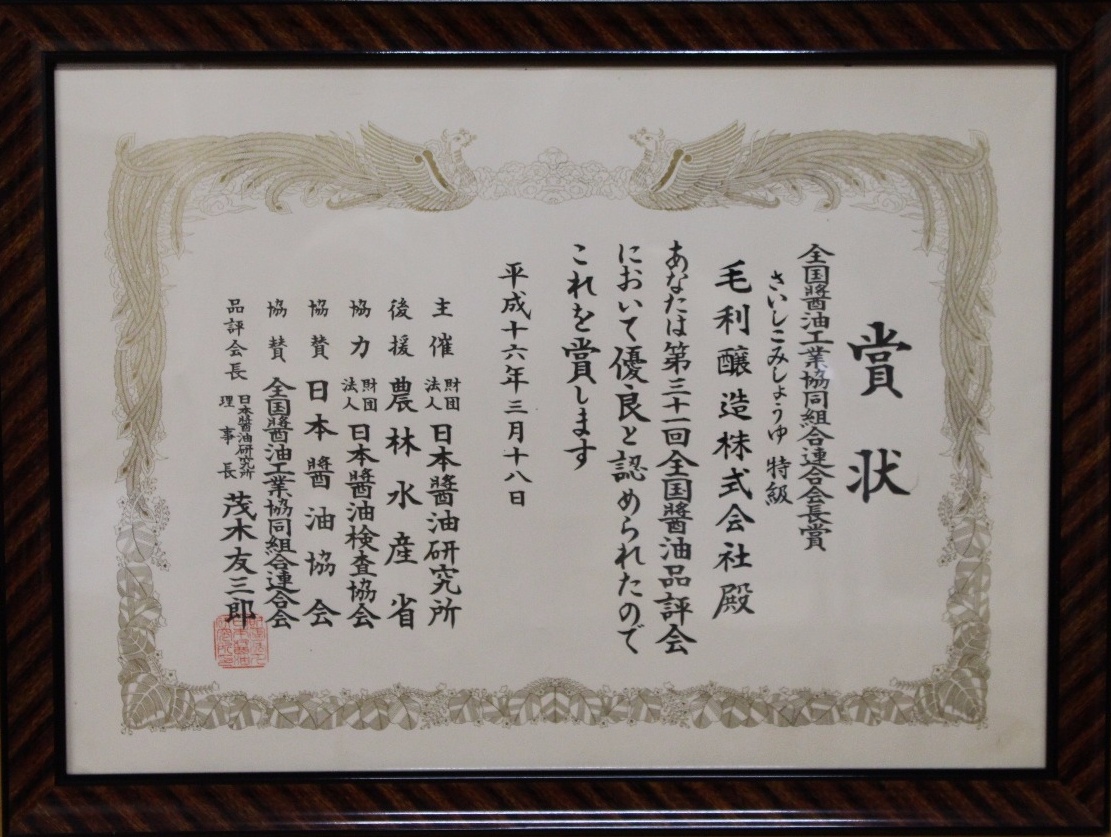 賞状
全国醬油工業協同組合連合会長賞
さいしこみしょうゆ 特級
毛利醸造株式会社殿
あなたは第三十一回全国醬油品評会
において優良と認められたので
これを賞します
平成十六年三月十八日
主催 財団法人 日本醬油研究所
後援 農林水産省
協力 財団法人 日本醬油検査協会
協賛 日本醬油協会
協賛 全国醬油工業協同組合連合会
品評会長 日本醬油研究所理事長 茂木友三郎